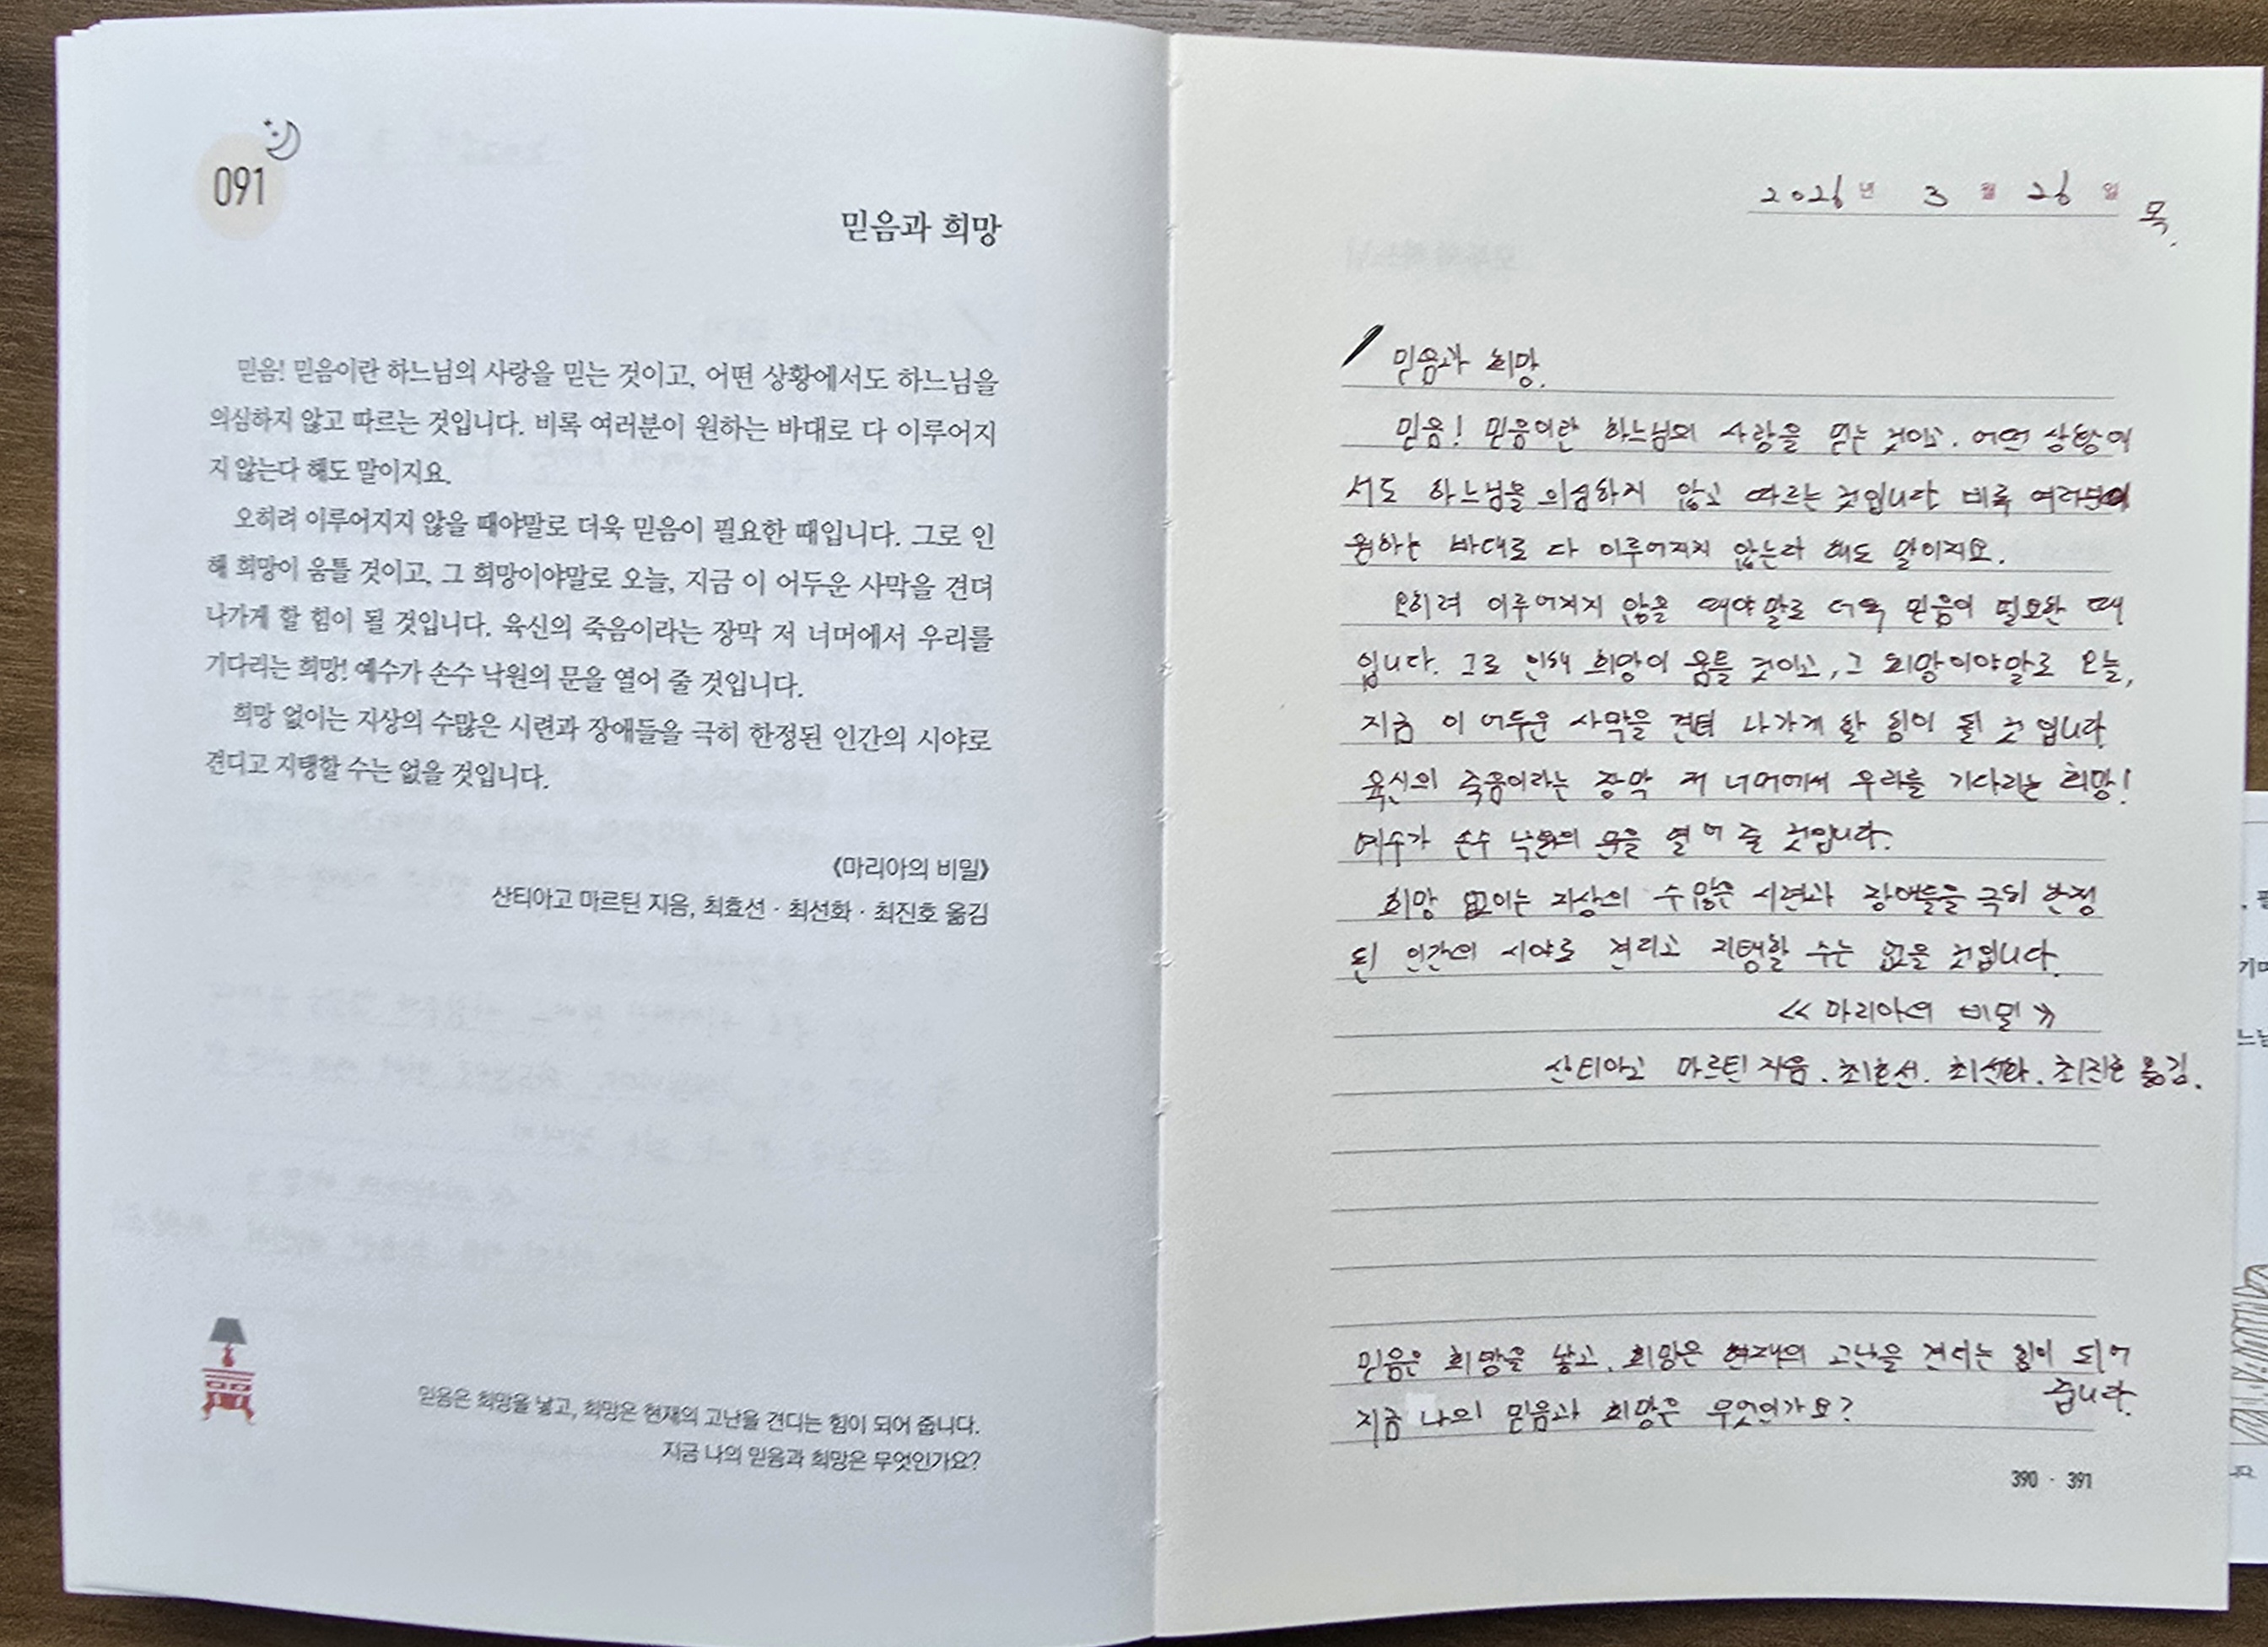 091
믿음과 희망
믿음! 믿음이란 하느님의 사랑을 믿는 것이고, 어떤 상황에서도 하느님을
의심하지 않고 따르는 것입니다. 비록 여러분이 원하는 바대로 다 이루어지
지 않는다 해도 말이지요.
오히려 이루어지지 않을 때야말로 더욱 믿음이 필요한 때입니다. 그로 인
해 희망이 움틀 것이고, 그 희망이야말로 오늘, 지금 이 어두운 사막을 견뎌
나가게 할 힘이 될 것입니다. 육신의 죽음이라는 장막 저 너머에서 우리를
기다리는 희망! 예수가 손수 낙원의 문을 열어 줄 것입니다.
희망 없이는 지상의 수많은 시련과 장애들을 극히 한정된 인간의 시야로
견디고 지탱할 수는 없을 것입니다.
《마리아의 비밀》
산티아고 마르틴 지음, 최효선 · 최선화 · 최진호 옮김
믿음은 희망을 낳고, 희망은 현재의 고난을 견디는 힘이 되어 줍니다.
지금 나의 믿음과 희망은 무엇인가요?
2026년 3월 26일 목.
믿음과 희망.
믿음! 믿음이란 하느님의 사랑을 믿는 것이고. 어떤 상황에
서도 하느님을 의심하지 않고 따르는 것입니다 비록 여러분이
원하는 바대로 다 이루어지지 않는다 해도 말이지요.
오히려 이루어지지 않을 때야말로 더욱 믿음이 필요한 때
입니다. 그로 인해 희망이 움틀 것이고, 그 희망이야말로 오늘,
지금 이 어두운 사막을 견뎌 나가게 할 힘이 될 것 입니다
육신의 죽음이라는 장막 저 너머에서 우리를 기다리는 희망!
예수가 손수 낙원의 문을 열어 줄 것입니다.
희망 없이는 지상의 수많은 시련과 장애들을 극히 한정
된 인간의 시야로 견디고 지탱할 수는 없을 것입니다.
≪마리아의 비밀≫
산티아고 마르틴 지음. 최효선. 최선화. 최진호 옮김.
믿음은 희망을 낳고. 희망은 현재의 고난을 견디는 힘이 되어
줍니다.
지금 나의 믿음과 희망은 무엇인가요?
390 · 391